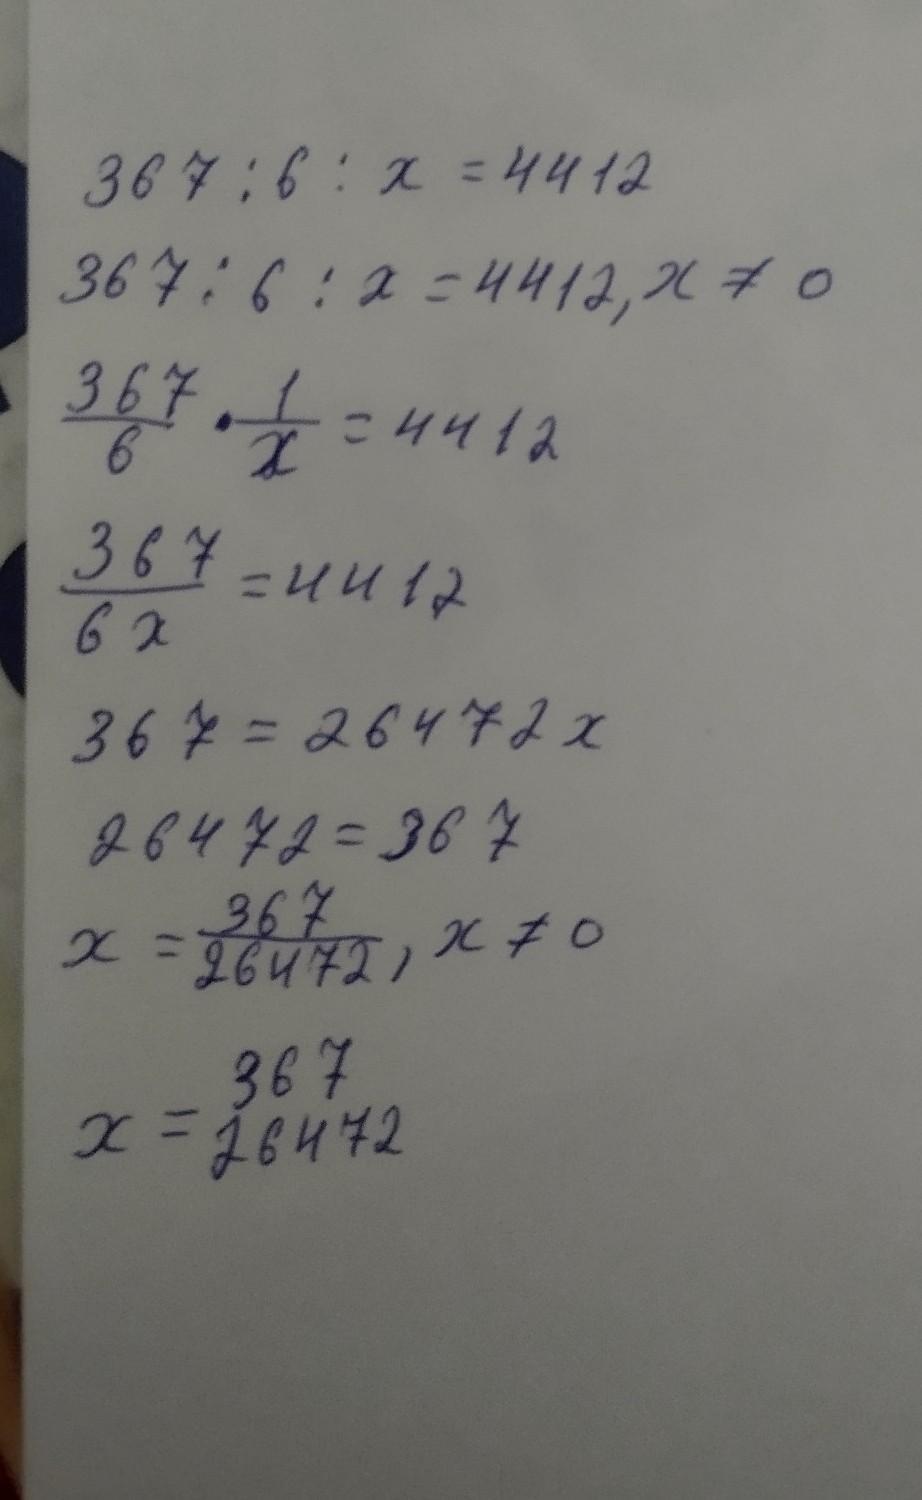 367 : 6 : x = 4412
367 : 6 : x = 4412, x ≠ 0
367/6 · 1/x = 4412
367/6x = 4412
367 = 26472x
26472 = 367
x = 367/26472, x ≠ 0
x = 367
26472